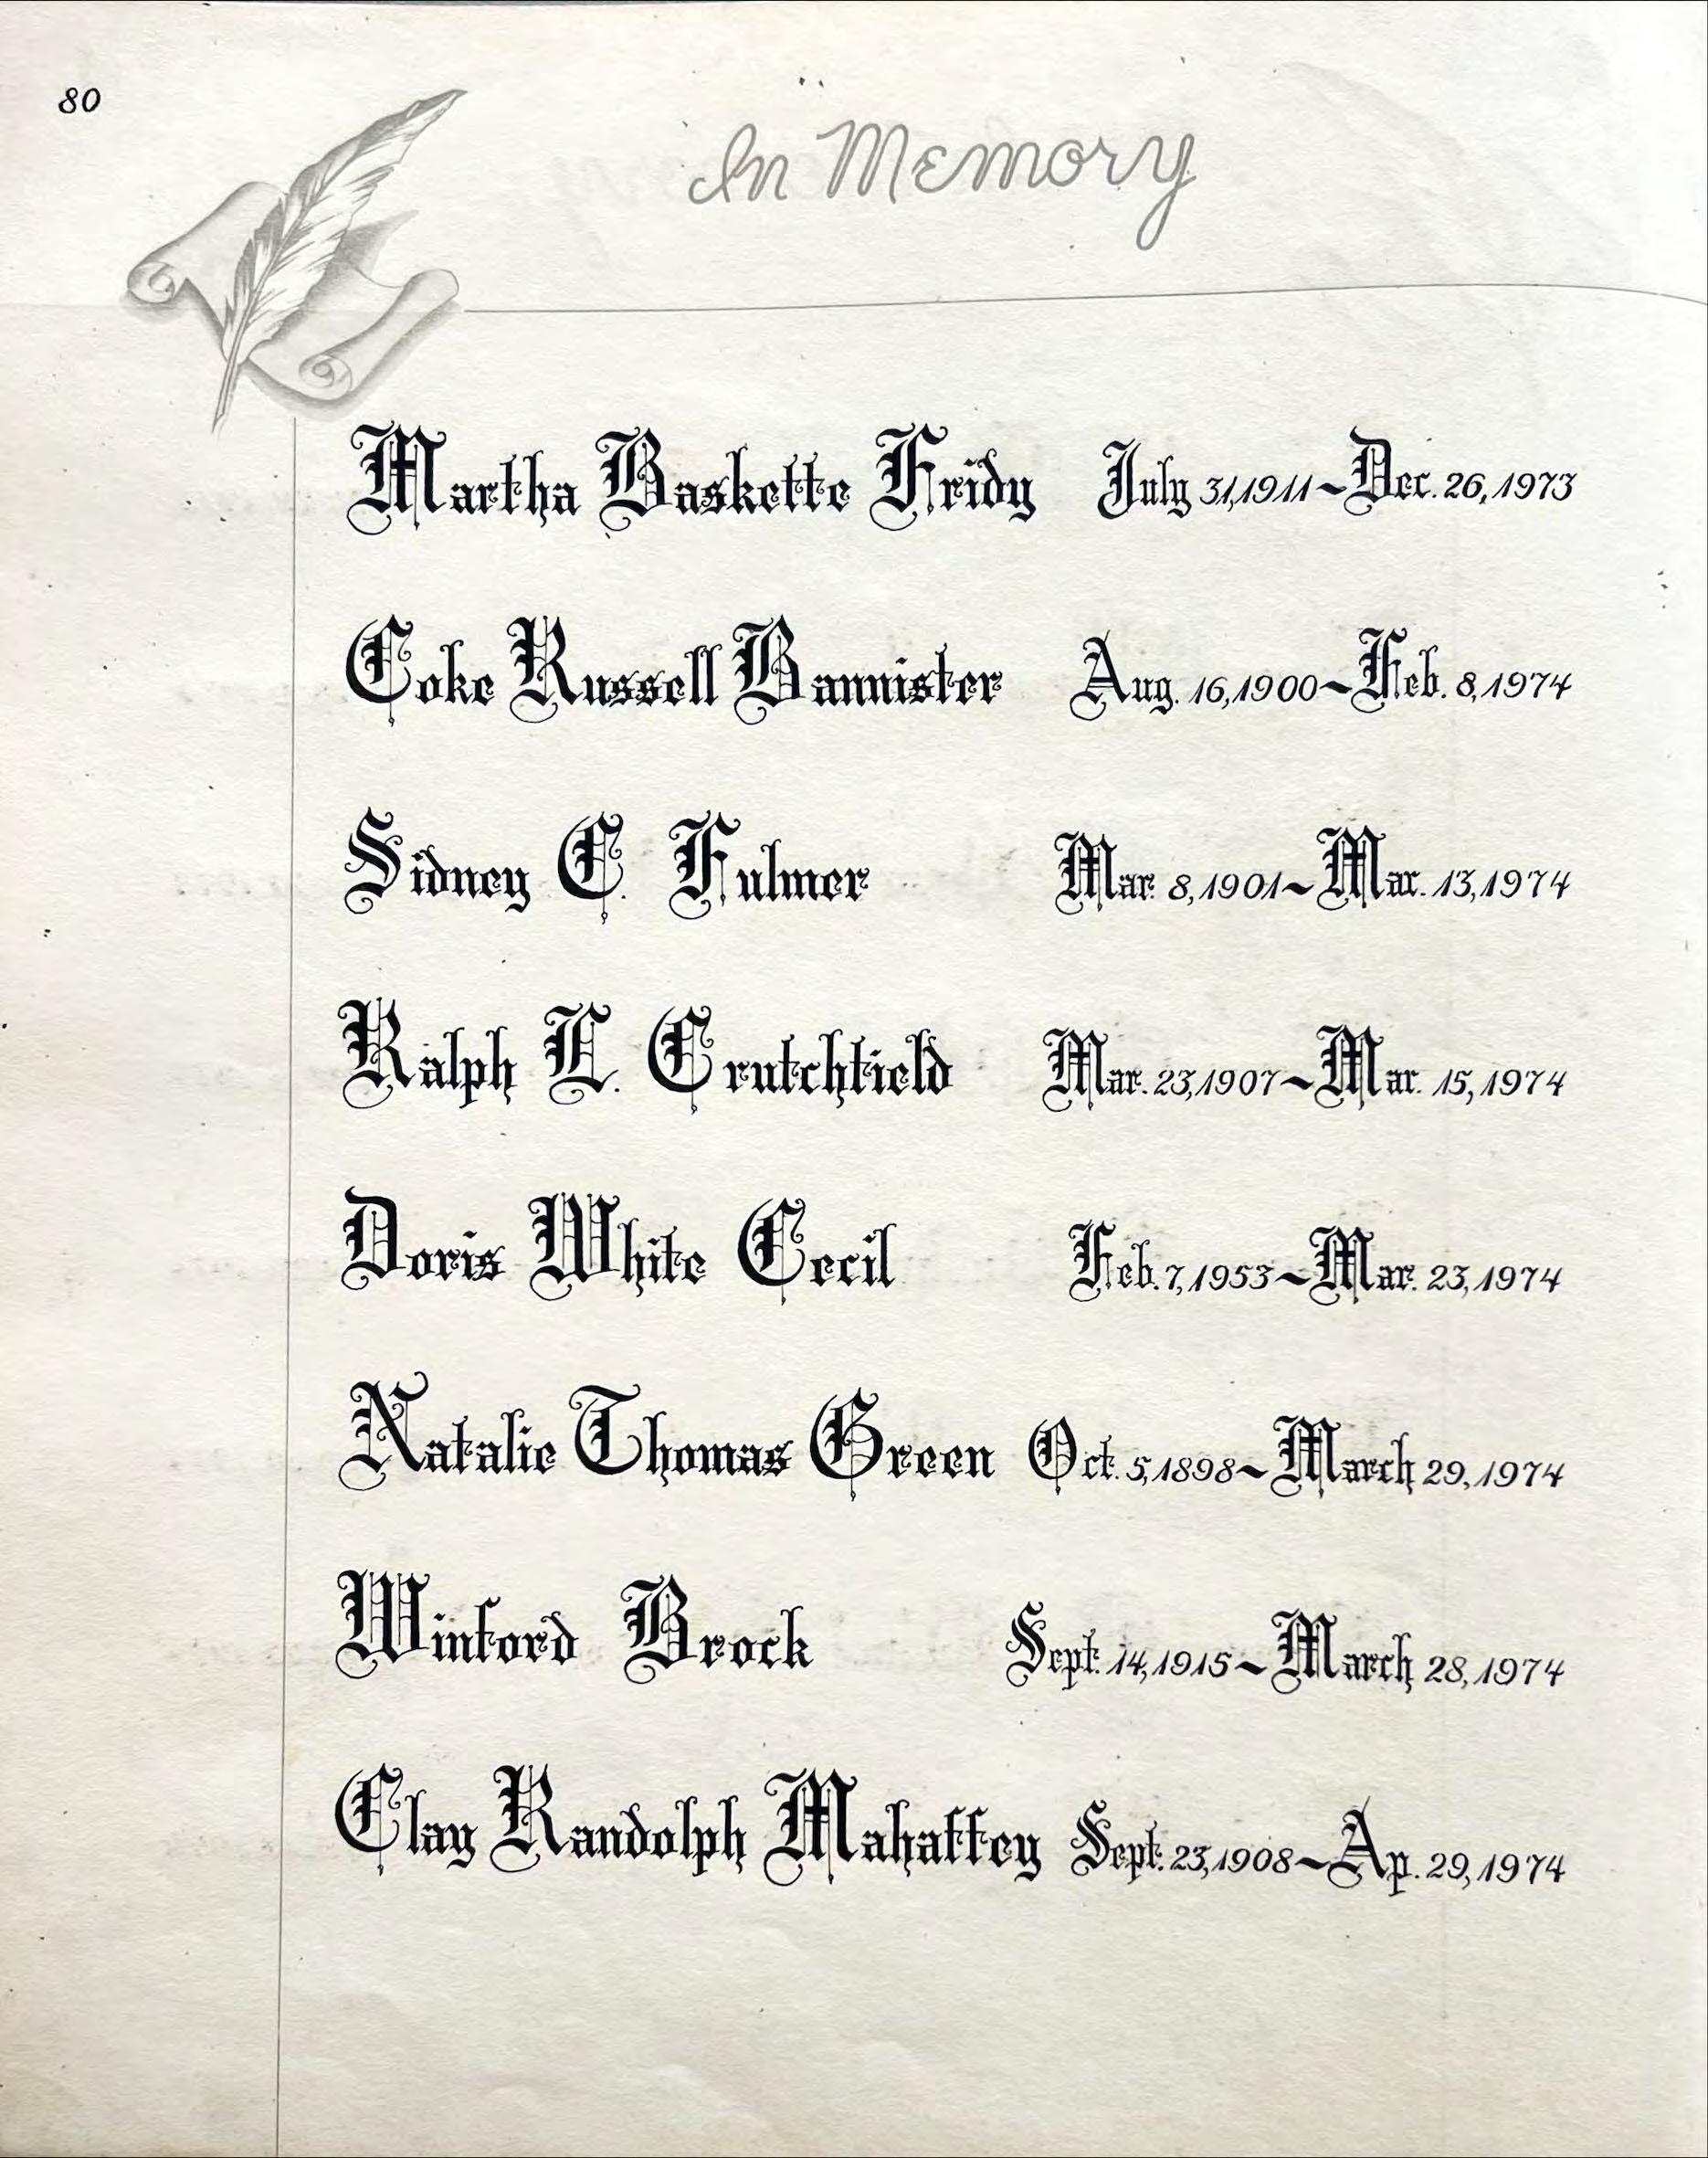 80
In Memory
Martha Baskette Fridy July 31, 1911 ~ Dec. 26, 1973
Coke Russell Bannister Aug. 16, 1900 ~ Feb. 8, 1974
Sidney C. Fulmer Mar. 8, 1901 ~ Mar. 13, 1974
Ralph L. Crutchfield Mar. 23, 1907 ~ Mar. 15, 1974
Doris White Cecil Feb. 7, 1953 ~ Mar. 23, 1974
Natalie Thomas Green Oct. 5, 1898 ~ March 29, 1974
Winford Brock Sept. 14, 1915 ~ March 28, 1974
Clay Randolph Mahaffey Sept. 23, 1908 ~ Ap. 29, 1974